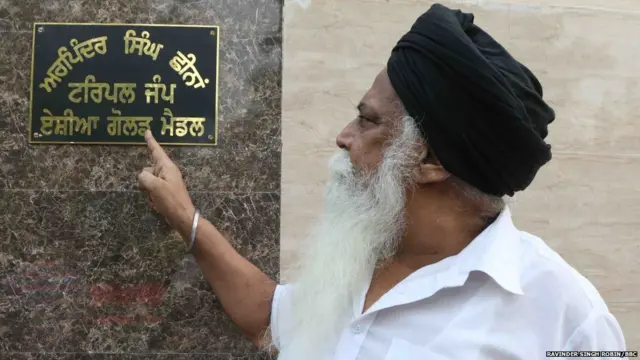 ਅਰਪਿੰਦਰ ਸਿੰਘ ਛੀਨਾਂ
ਟਰਿਪਲ ਜੰਪ
ਏਸ਼ੀਆ ਗੋਲਡ ਮੈਡਲ
RAVINDER SINGH ROBIN/BBC